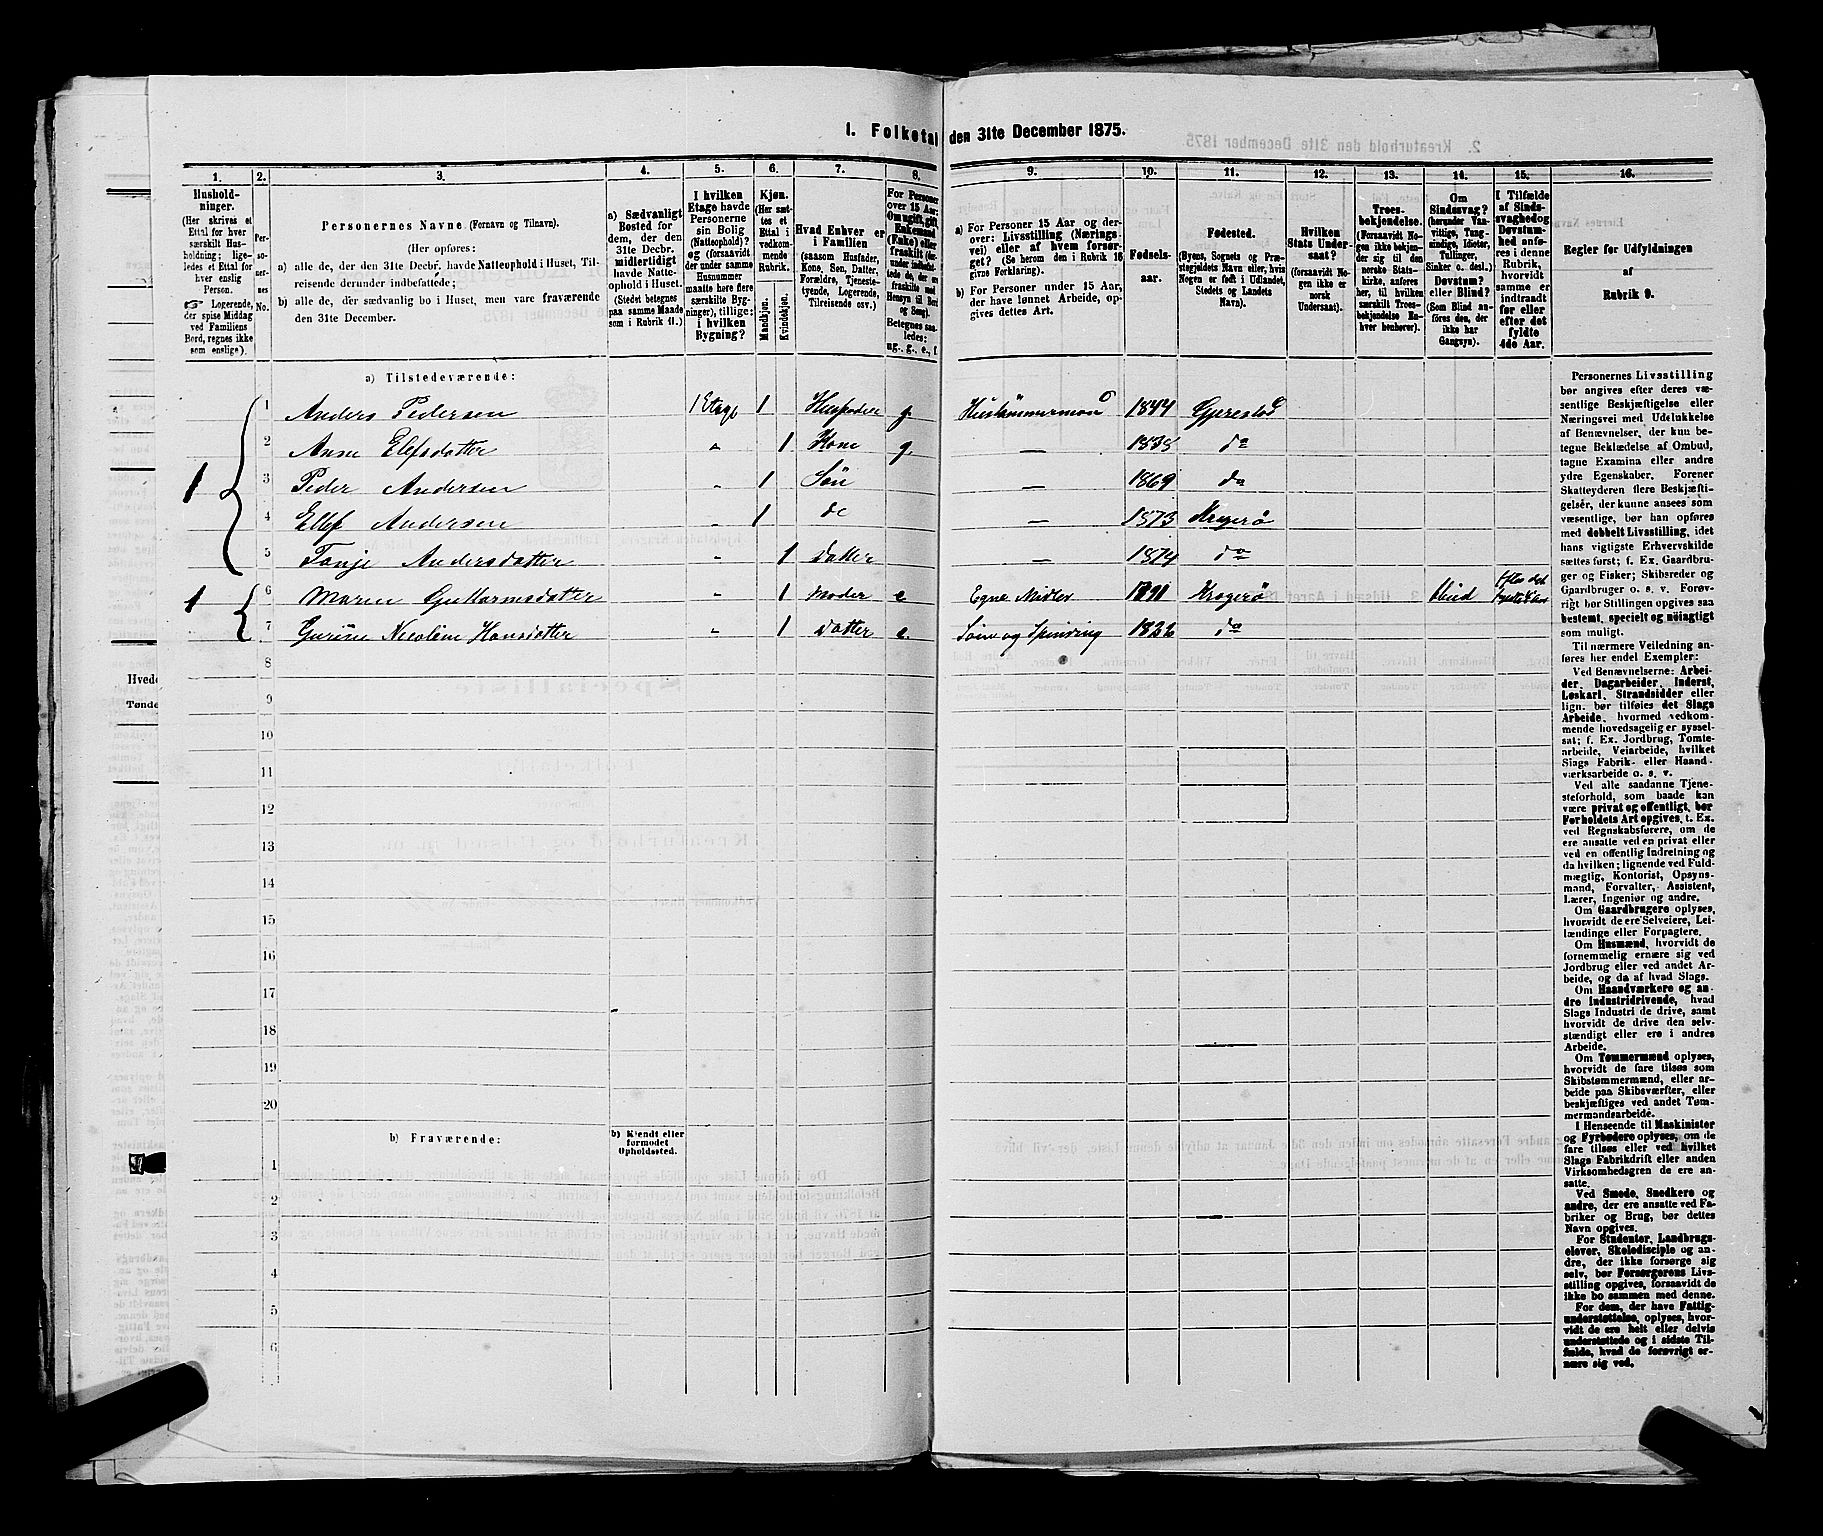 1. Folketal den 31te December 1875.
1. 2. 3. 4. 5. 6. 7. 8. 9. 10. 11. 12. 13. 14. 15. 16.
Hushold-
ninger.
(Her skrives et
Ettal for hver
særskilt Hus-
holdning; lige-
ledes et Ettal for
hver enslig
Person.
☞ Logerende,
der spise Middag
ved Familiens
Bord, regnes ikke
som enslige).
Per-
so-
ner-
nes
No.
Personernes Navne (Fornavn og Tilnavn).
(Her opføres:
a) alle de, der den 31te Decbr. havde Natteophold i Huset, Til-
reisende derunder indbefattede;
b) alle de, der sædvanlig bo i Huset, men vare fraværende
den 31te December.
a) Sædvanligt
Bosted for
dem, der den
31te Decbr.
midlertidigt
havde Natte-
ophold i Huset.
(Stedet betegnes
paa samme Maade
som i Rubrik 11.)
I hvilken
Etage havde
Personerne
sin Bolig
(Natteophold)?
og (forsaavidt
der under samme
Husnummer
maatte høre flere
særskilte Byg-
ninger), tillige:
i hvilken
Bygning?
Kjøn.
(Her sæt-
tes et
Ettal i
vedkom-
mende
Rubrik.
Mandkjøn.
Kvindekjøn.
Hvad Enhver er
i Familien
(saasom Husfader,
Kone, Søn, Datter,
Forældre, Tjeneste-
tyende, Logerende,
Tilreisende osv.)
For Personer
over 15 Aar:
Om ugift, gift,
Enkemand
(Enke) eller
fraskilt (der-
under indbefat-
tede de, der ere
fraskilte med
Hensyn til Bord
og Seng).
Betegnes saa-
ledes:
ug., g., e., f.
a) For Personer 15 Aar og der-
over: Livsstilling (Nærings-
vei) eller af hvem forsør-
get? (Se herom den i Rubrik 16
givne Forklaring).
b) For Personer under 15 Aar,
der have lønnet Arbeide, op-
gives dettes Art.
Fødsels-
aar.
Fødested.
(Byens, Sognets og Præ-
stegjeldets Navn eller, hvis
Nogen er født i Udlandet,
Stedets og Landets
Navn).
Hvilken
Stats Under-
saat?
(forsaavidt No-
gen ikke er
norsk
Undersaat).
Troes-
bekjendelse.
(Forsaavidt No-
gen ikke bekjen-
der sig til den
norske Stats-
kirke, anføres
her, til hvilken
særskilt Troes-
bekjendelse En-
hver henhører).
Om
Sindssvag?
(herunder Van-
vittige, Tung-
sindige, Idioter,
Tullinger,
Sinker o. desl.)
Døvstum?
eller Blind?
(Som Blind an-
føres den, der
ikke har
Gangsyn).
I Tilfælde
af Sinds-
svaghed og
Døvstum-
hed anfø-
res i denne
Rubrik,
hvorvidt
samme er
indtraadt
før eller
efter det
fyldte
4de Aar.
Regler for Udfyldningen
af
Rubrik 9.
a) Tilstedeværende:
1 1 Anders Pedersen 1 Etage 1 Husfader g. 1844 Gjerestad
2 Anne Elefsdatter „ 1 Kone g. — 1838 do
3 Peder Andersen „ 1 Søn — 1869 do
4 Ellef Andersen „ 1 do — 1873 Kragerø
5 Tonje Andersdatter „ 1 Datter — 1874 do
1 6 Maren Guttormsdatter „ 1 Moder e Egne Midler 1791 Kragerø blind
7 Gurine Nicoline Hansdatter „ 1 Datter e. Søm og Spinding 1822 do
8
9
10
11
12
13
14
15
16
17
18
19
20
b) Fraværende:
b) Kjendt eller
formodet
Opholdssted.
1
2
3
4
5
6
Personernes Livsstilling
bør angives efter deres væ-
sentlige Beskjæftigelse eller
Næringsvei med Udelukkelse
af Benævnelser, der kun be-
tegne Beklædelse af Ombud,
tagne Examina eller andre
ydre Egenskaber. Forener
Skatteyderen flere Beskjæfti-
gelser, der kunne ansees som
væsentlige, bør han opføres
med dobbelt Livsstilling, idet
hans vigtigste Erhvervskilde
sættes først; f. Ex. Gaardbru-
ger og Fisker; Skibsreder og
Gaardbruger o. s. v. Forøv-
rigt bør Stillingen opgives saa
bestemt, specielt og nøiagtigt
som muligt.
Til nærmere Veiledning an-
føres her endel Exempler:
Ved Benævnelserne: Arbei-
der, Dagarbeider, Inderst,
Løskarl, Strandsidder eller
lign. bør tilføies det Slags
Arbeide, hvormed vedkom-
mende hovedsagelig er syssel-
sat; f. Ex. Jordbrug, Tomte-
arbeide, Veiarbeide, hvilket
Slags Fabrik- eller Haand-
værksarbeide o. s. v.
Ved alle saadanne Tjene-
steforhold, som baade kan
være privat og offentligt, bør
Forholdets Art opgives, t. Ex.
ved Regnskabsførere, om de
ere ansatte ved en privat eller
ved en offentlig Indretning og
da hvilken; lignende ved Fuld-
mægtig, Kontorist, Opsyns-
mand, Forvalter, Assistent,
Lærer, Ingeniør og andre.
Om Gaardbrugere oplyses,
hvorvidt de ere Selveiere, Lei-
lændinge eller Forpagtere.
Om Husmænd, hvorvidt de
fornemmelig ernære sig ved
Jordbrug eller ved andet Ar-
beide, og da af hvad Slags.
Om Haandværkere og an-
dre Industridrivende, hvad
Slags Industri de drive, samt
hvorvidt de drive den selv-
stændigt eller ere i andres
Arbeide.
Om Tømmermænd oplyses,
hvorvidt de fare tilsøs som
Skibstømmermænd, eller ar-
beide paa Skibsværfter, eller
beskjæftiges ved andet Tøm-
mermandsarbeide.
I Henseende til Maskinister
og Fyrbødere oplyses, om de
fare tilsøs eller ved hvilket
Slags Fabrikdrift eller anden
Virksomhedsgren de ere an-
satte.
Ved Smede, Snedkere og
andre, der ere ansatte ved Fa-
briker og Brug, bør dettes
Navn opgives.
For Studenter, Landbrugs-
elever, Skoledisciple og an-
dre, der ikke forsørge sig
selv, bør Forsørgerens Livs-
stilling opgives, forsaavidt de
ikke bo sammen med denne.
For dem, der have Fattig-
understøttelse, oplyses, hvor-
vidt de ere helt eller delvis
understøttede og i sidste Til-
fælde, hvad de forøvrigt er-
nære sig ved.
Hvede
Tønde